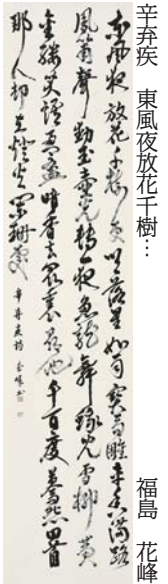 辛弃疾 東風夜放花千樹… 福島 花峰
東風夜放花千樹更吹落星如雨寶馬雕車香滿路
鳳簫聲動玉壺光轉一夜魚龍舞蛾兒雪柳黃
金縷笑語盈盈暗香去衆裏尋他千百度驀然回首
那人却在燈火闌珊處
辛弃疾詩 花峰書